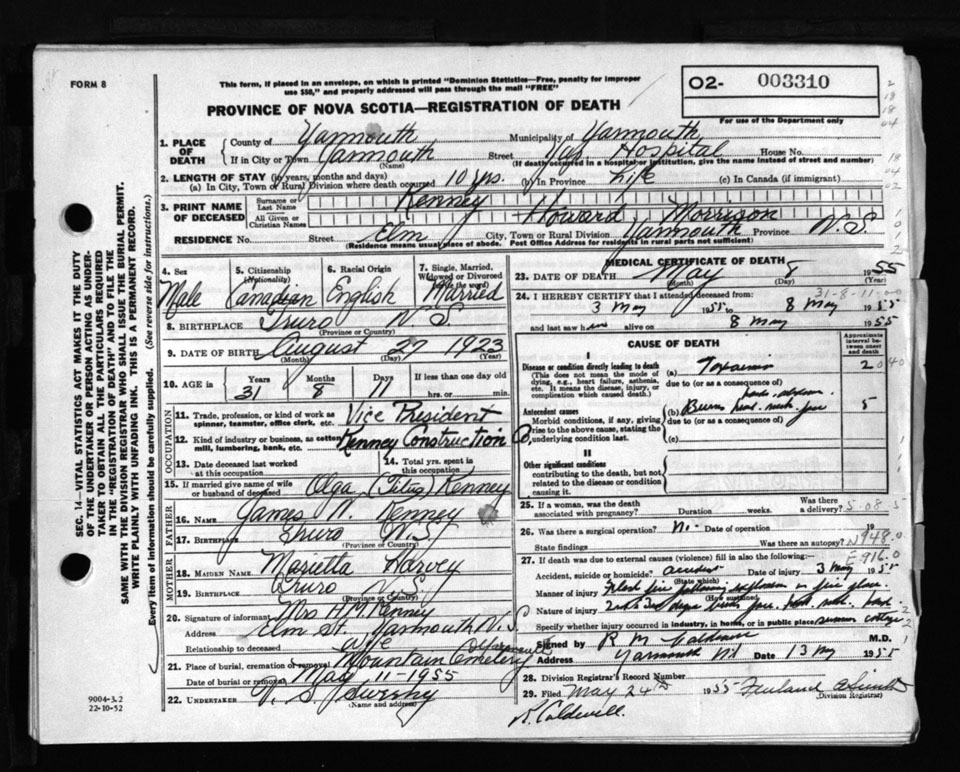 FORM 8
This form, if placed in an envelope, on which is printed "Dominion Statistics—Free, penalty for improper
use $50," and properly addressed will pass through the mail "FREE"
02- 003310
For use of the Department only
PROVINCE OF NOVA SCOTIA—REGISTRATION OF DEATH
SEC. 14—VITAL STATISTICS ACT MAKES IT THE DUTY
OF THE UNDERTAKER OR PERSON ACTING AS UNDER-
TAKER TO OBTAIN ALL THE PARTICULARS REQUIRED
IN THE "REGISTRATION OF DEATH" AND TO FILE THE
SAME WITH THE DIVISION REGISTRAR WHO SHALL ISSUE THE BURIAL PERMIT.
WRITE PLAINLY WITH UNFADING INK. THIS IS A PERMANENT RECORD.
Every item of information should be carefully supplied. (See reverse side for instructions.)
1. PLACE OF DEATH
County of Yarmouth Municipality of Yarmouth
If in City or Town Yarmouth Street Hospital House No.
(Name) (If death occurred in a hospital or institution, give the name instead of street and number)
2. LENGTH OF STAY (in years, months and days)
(a) In City, Town or Rural Division where death occurred 10 yrs. (b) In Province Life (c) In Canada (if immigrant)
3. PRINT NAME OF DECEASED
Surname or Last Name Kenney
All Given or Christian Names Howard Morrison
RESIDENCE No. Street Elm City, Town or Rural Division Yarmouth Province N.S.
(Residence means usual place of abode. Post Office Address for residents in rural parts not sufficient)
4. Sex
Male
5. Citizenship (Nationality)
Canadian
6. Racial Origin
English
7. Single, Married, Widowed or Divorced (write the word)
Married
8. BIRTHPLACE Truro N.S.
(Province or Country)
9. DATE OF BIRTH August 27 1923
(Month) (Day) (Year)
10. AGE in Years Months Days If less than one day old
31 8 11 hrs. or min.
OCCUPATION
11. Trade, profession or kind of work as
spinner, teamster, office clerk, etc. Vice President
12. Kind of industry or business, as cotton
mill, lumbering, bank, etc. Kenney Construction Co
13. Date deceased last worked
at this occupation
14. Total yrs. spent in
this occupation
15. If married give name of wife
or husband of deceased Olga (Titus) Kenney
FATHER
16. NAME James W. Kenney
17. BIRTHPLACE Truro N.S.
(Province or Country)
MOTHER
18. MAIDEN NAME Marietta Harvey
19. BIRTHPLACE Truro N.S.
(Province or Country)
20. Signature of informant Mrs H.M. Kenney
Address Elm St. Yarmouth N.S.
Relationship to deceased wife
21. Place of burial, cremation or removal Mountain Cemetery Yarmouth
Date of burial or removal May 11-1955
22. UNDERTAKER V. S. Sweeny
(Name and address)
9004-3.2
22-10-52
MEDICAL CERTIFICATE OF DEATH
23. DATE OF DEATH May 8 1955
(Month) (Day) (Year)
31-8-11-00
24. I HEREBY CERTIFY that I attended deceased from:
3 May 1955 to 8 May 1955
and last saw him alive on 8 May 1955
CAUSE OF DEATH
Approximate interval between onset and death
I
Disease or condition directly leading to death
(This does not mean the mode of
dying, e.g., heart failure, asthenia,
etc. It means the disease, injury, or
complication which caused death.)
(a) Toxaemia 2
due to (or as a consequence of)
Antecedent causes
Morbid conditions, if any, giving
rise to the above cause, stating the
underlying condition last.
(b) Burns head, neck, face 5
due to (or as a consequence of)
(c)
II
Other significant conditions
contributing to the death, but not
related to the disease or condition
causing it.
25. If a woman, was the death
associated with pregnancy? Duration weeks. Was there a delivery?
26. Was there a surgical operation? No - Date of operation 19
State findings Was there an autopsy?
N948.0
27. If death was due to external causes (violence) fill in also the following:—
E916.0
Accident, suicide or homicide? accident Date of injury 3 May 1955
(State which)
Manner of injury Flash fire following explosion in fire place
(How sustained)
Nature of injury 2nd & 3rd degree burns face, head, neck, hands
Specify whether injury occurred in industry, in home, or in public place summer cottage
Signed by R M Caldwell M.D.
Address Yarmouth NS Date 13 May 1955
28. Division Registrar's Record Number
29. Filed May 24th 1955
(Division Registrar)
R. Caldwell.